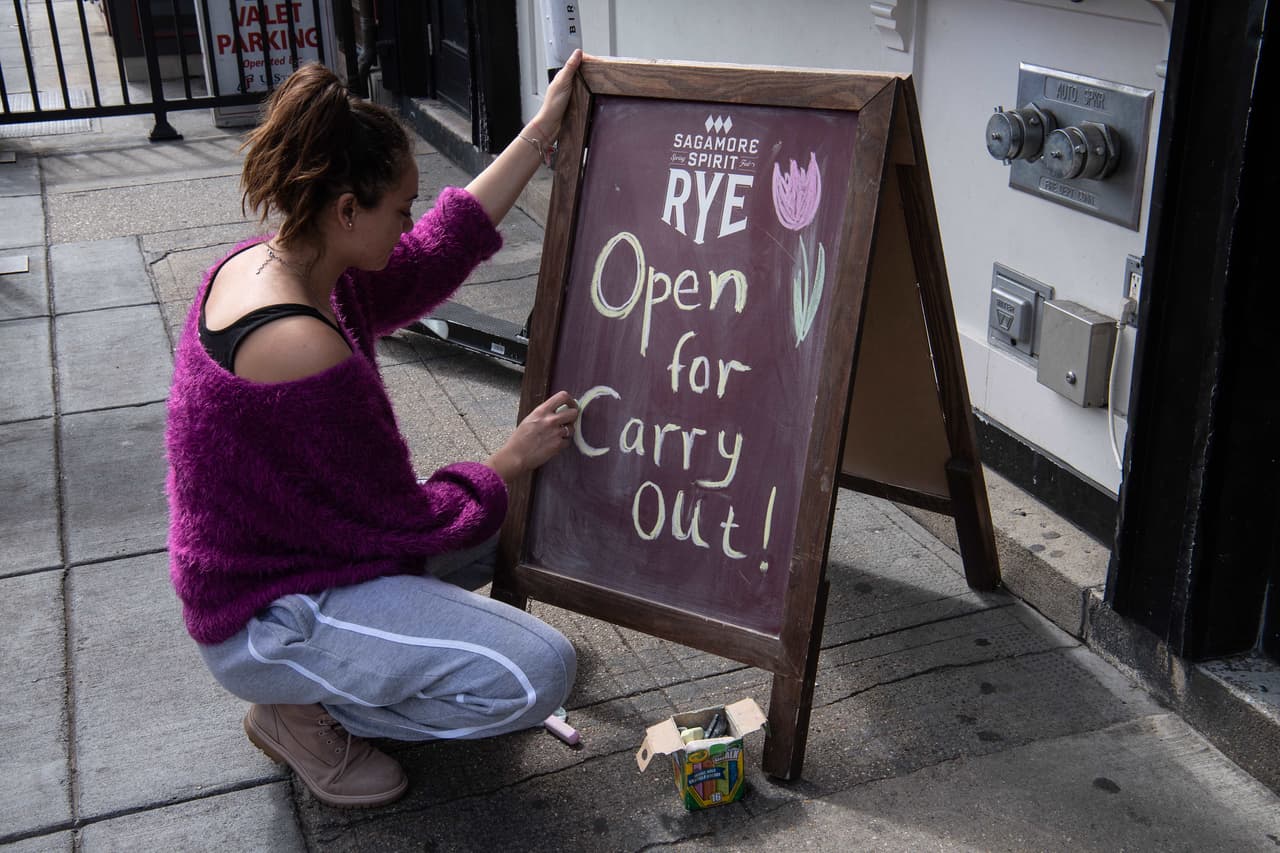 VALET
PARKING
Operated by:
BIR
SAGAMORE
SPIRIT
RYE
Open
for
Carry
Out!
AUTO SPKR
FIRE DEPT CONN
16